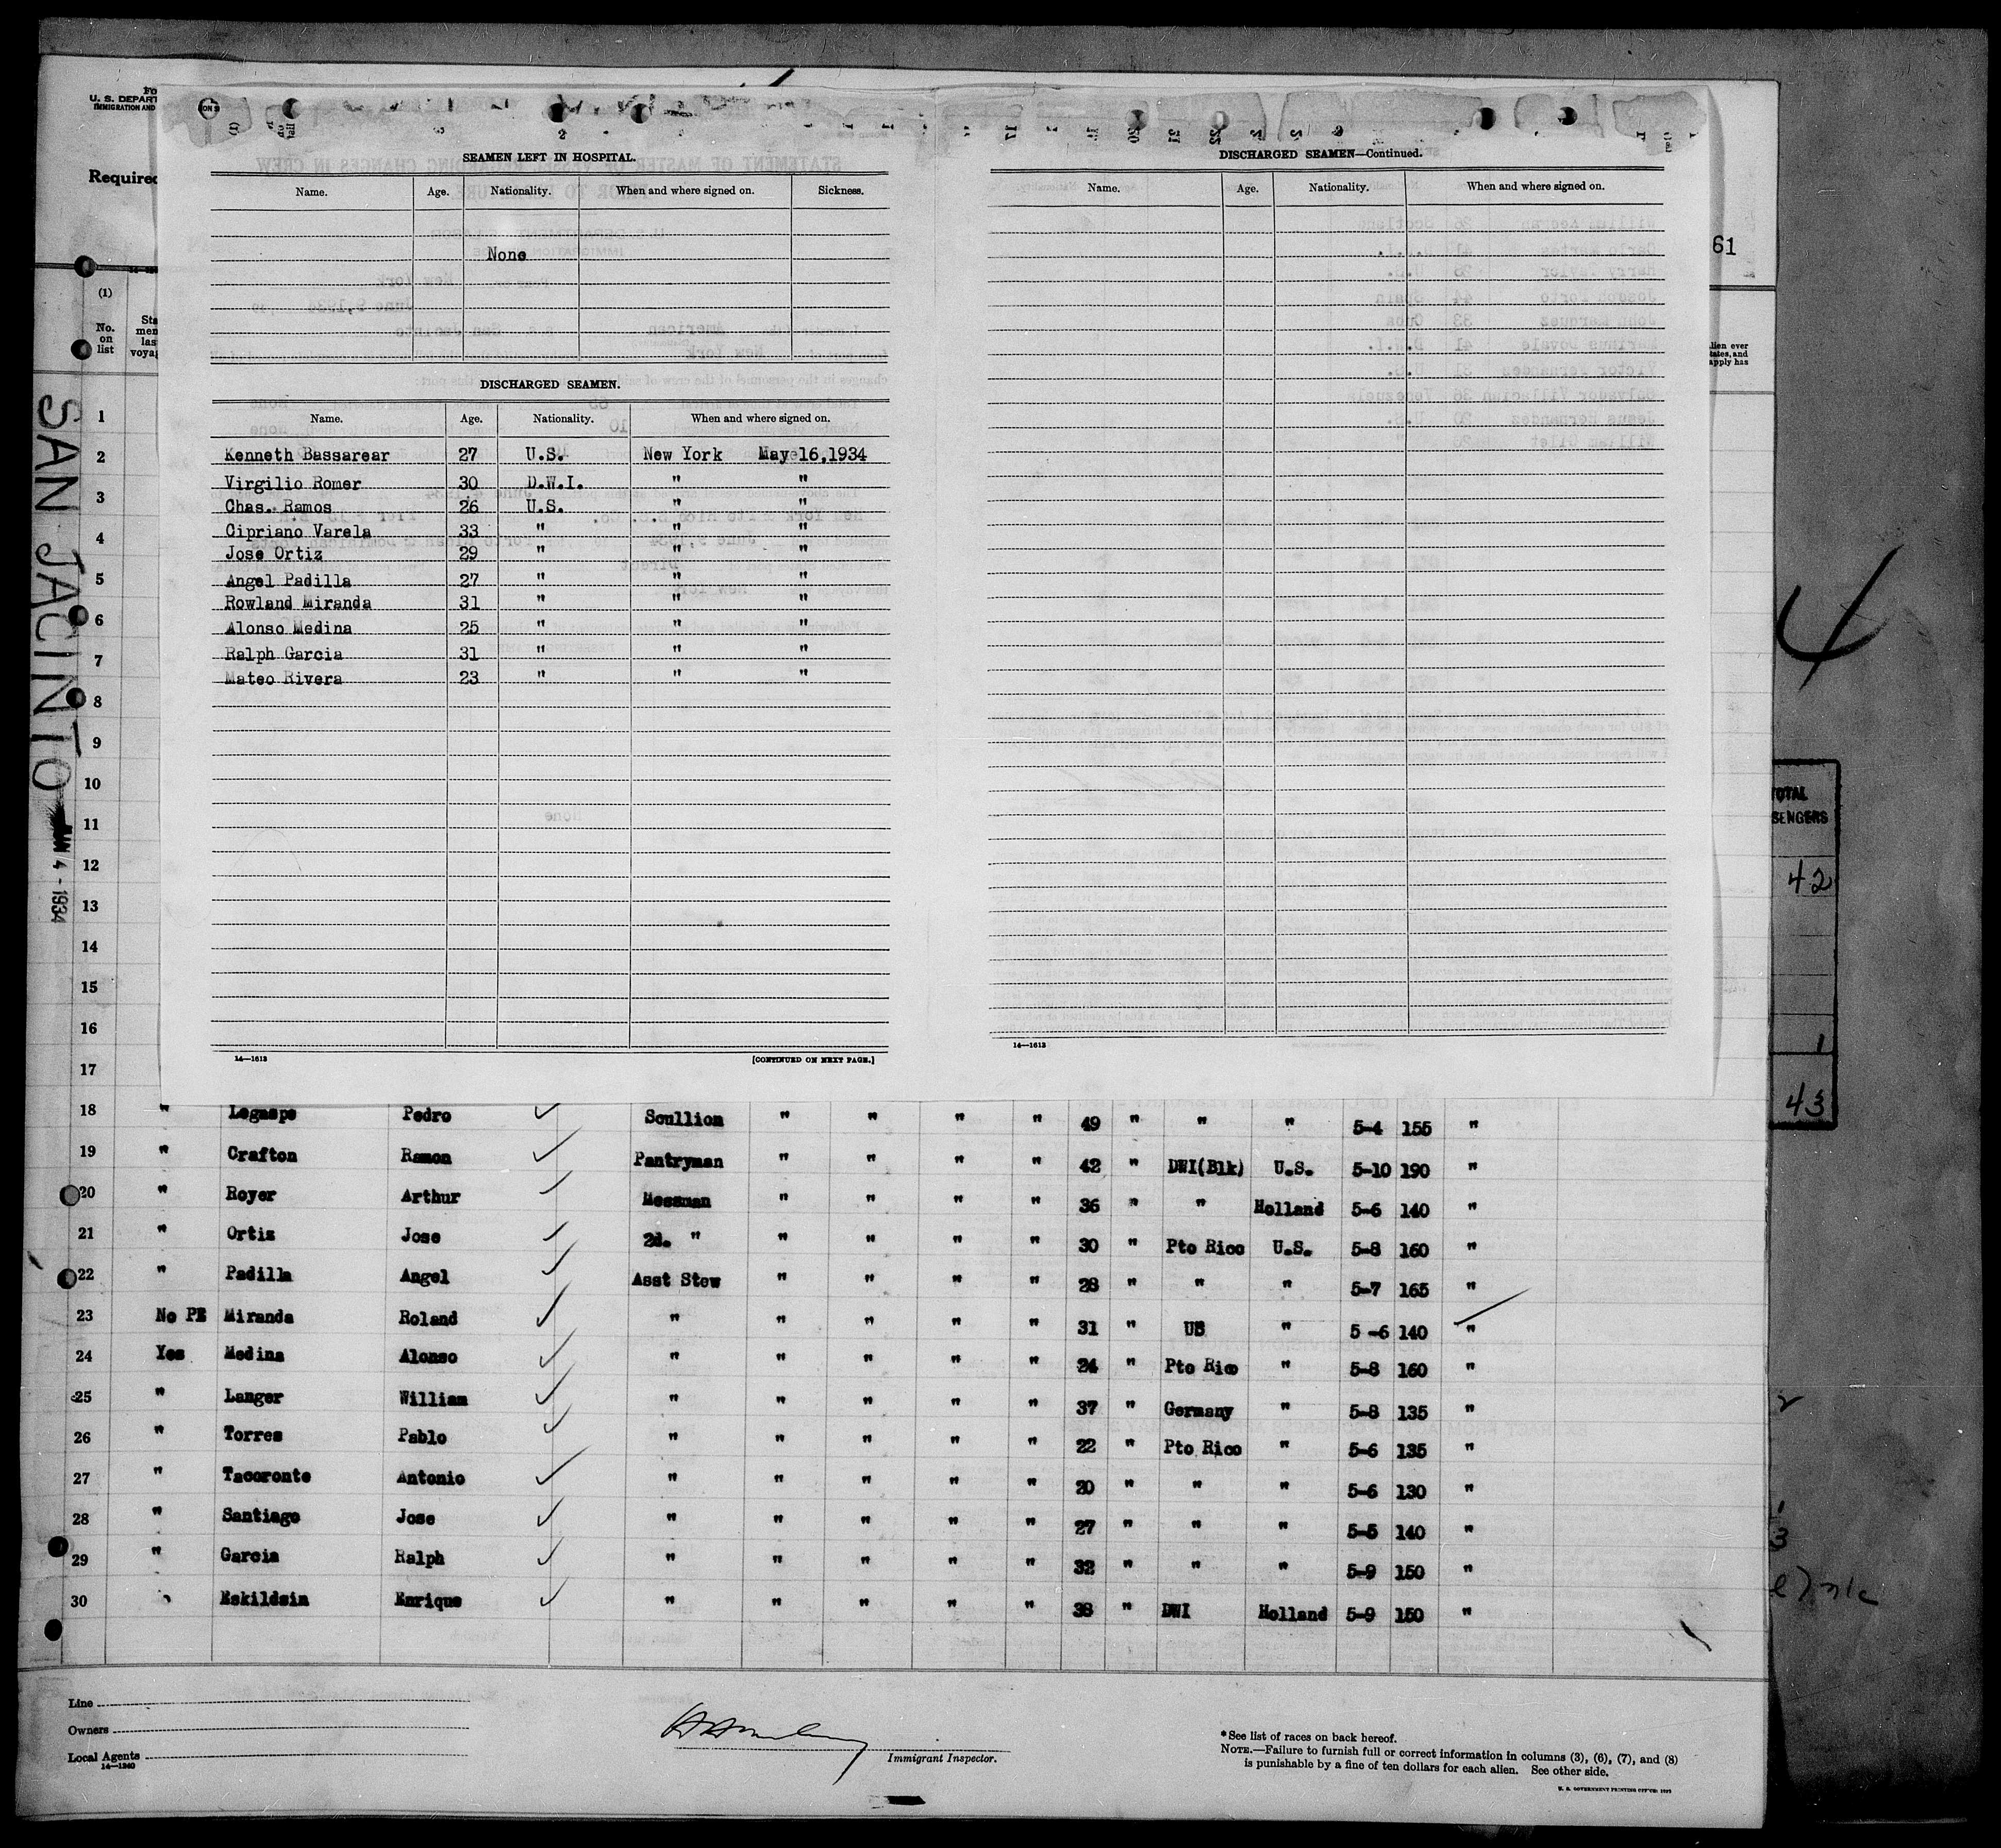 U. S. DEPART
IMMIGRATION AND
Required
SEAMEN LEFT IN HOSPITAL.
Name. Age. Nationality. When and where signed on. Sickness.
None
DISCHARGED SEAMEN.
Name. Age. Nationality. When and where signed on.
Kenneth Bassarear 27 U.S. New York May 16,1934
Virgilio Romer 30 D.W.I. " "
Chas. Ramos 26 U.S. " "
Cipriano Varela 33 " " "
Jose Ortiz 29 " " "
Angel Padilla 27 " " "
Rowland Miranda 31 " " "
Alonso Medina 25 " " "
Ralph Garcia 31 " " "
Mateo Rivera 23 " " "
14—1613 [CONTINUED ON NEXT PAGE.]
DISCHARGED SEAMEN—Continued.
Name. Age. Nationality. When and where signed on.
14—1613
61
(1)
No. on list
Sta
men
las
voyag
lien ever
tates, and
apply has
SAN JACINTO
4 - 1934
1
2
3
4
5
6
7
8
9
10
11
12
13
14
15
16
17
18 " Legaspe Pedro Scullion " " " " 49 " " " 5-4 155 "
19 " Crafton Ramon Pantryman " " " " 42 " DWI(Blk) U.S. 5-10 190 "
20 " Royer Arthur Messman " " " " 36 " " Holland 5-6 140 "
21 " Ortiz Jose 2d. " " " " " 30 " Pto Rico U.S. 5-8 160 "
22 " Padilla Angel Asst Stew " " " " 28 " " " 5-7 165 "
23 No PE Miranda Roland " " " " " 31 " US " 5-6 140 "
24 Yes Medina Alonso " " " " " 24 " Pto Rico " 5-8 160 "
25 " Langer William " " " " " 37 " Germany " 5-8 135 "
26 " Torres Pablo " " " " " 22 " Pto Rico " 5-6 135 "
27 " Tacoronte Antonio " " " " " 20 " " " 5-6 130 "
28 " Santiago Jose " " " " " 27 " " " 5-5 140 "
29 " Garcia Ralph " " " " " 32 " " " 5-9 150 "
30 " Eskildsin Enrique " " " " " 38 " DWI Holland 5-9 150 "
4
TOTAL
SENGERS
42
1
43
Line
Owners
Local Agents
14—1240
Immigrant Inspector.
*See list of races on back hereof.
NOTE.—Failure to furnish full or correct information in columns (3), (6), (7), and (8)
is punishable by a fine of ten dollars for each alien. See other side.